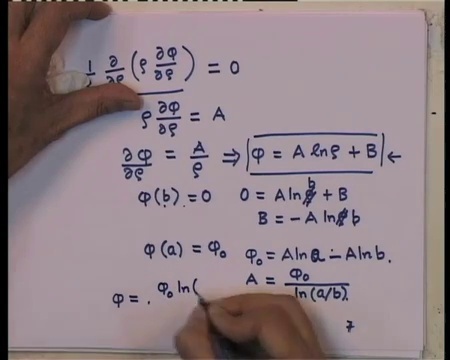 1/ρ ∂/∂ρ (ρ ∂φ/∂ρ) = 0
ρ ∂φ/∂ρ = A
∂φ/∂ρ = A/ρ ⇒ φ = A ln ρ + B ←
φ(b) = 0 0 = A ln b + B
B = - A ln b
φ(a) = φ₀ φ₀ = A ln a - A ln b.
φ = . φ₀ ln( A = φ₀ / ln(a/b).
7